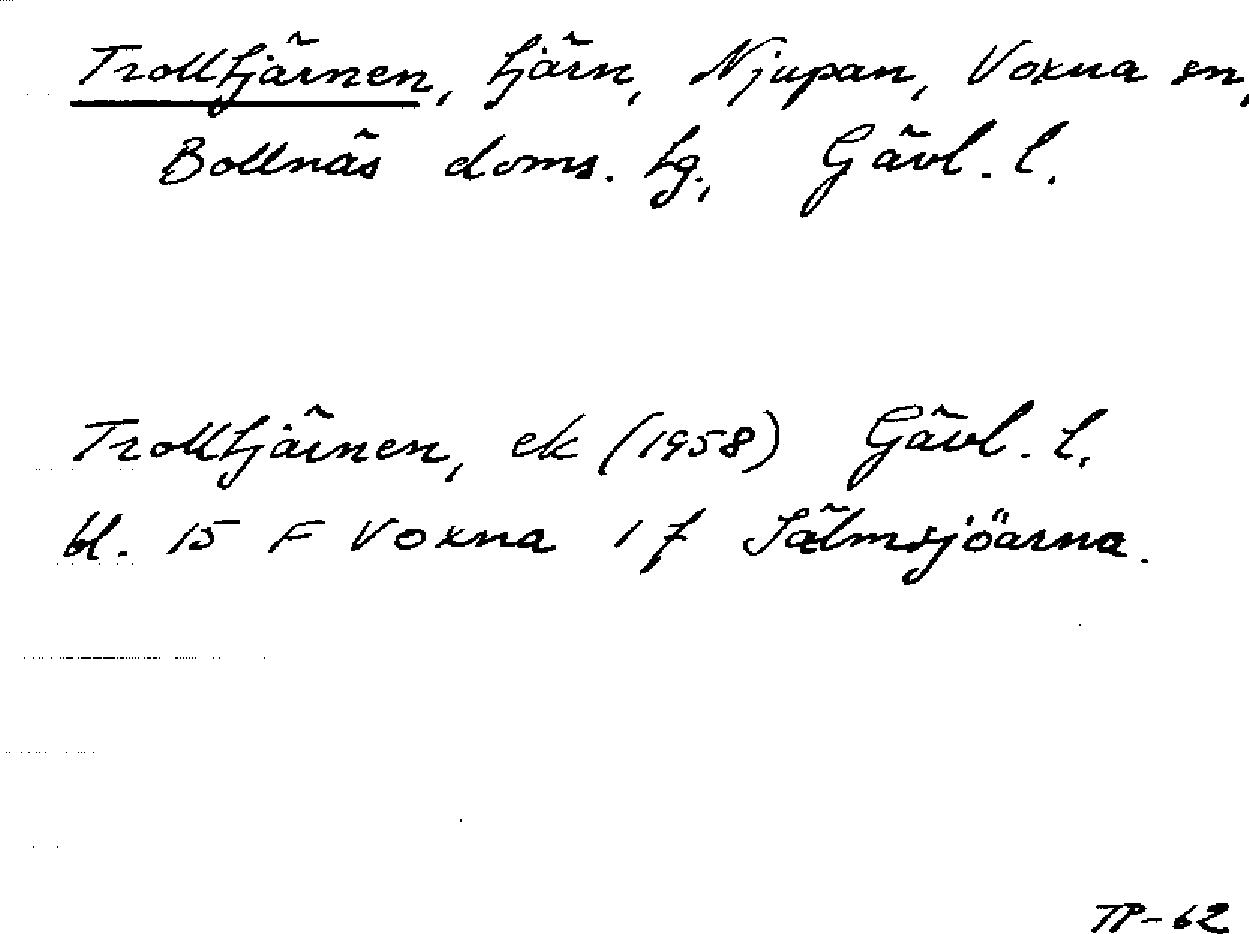 Trolltjärnen, tjärn, Njupan, Voxna sn,
Bollnäs doms. tg., Gävl. l.
Trolltjärnen, ek (1958) Gävl. l.
bl. 15 F Voxna 1 f Sälmsjöarna.
TP-62